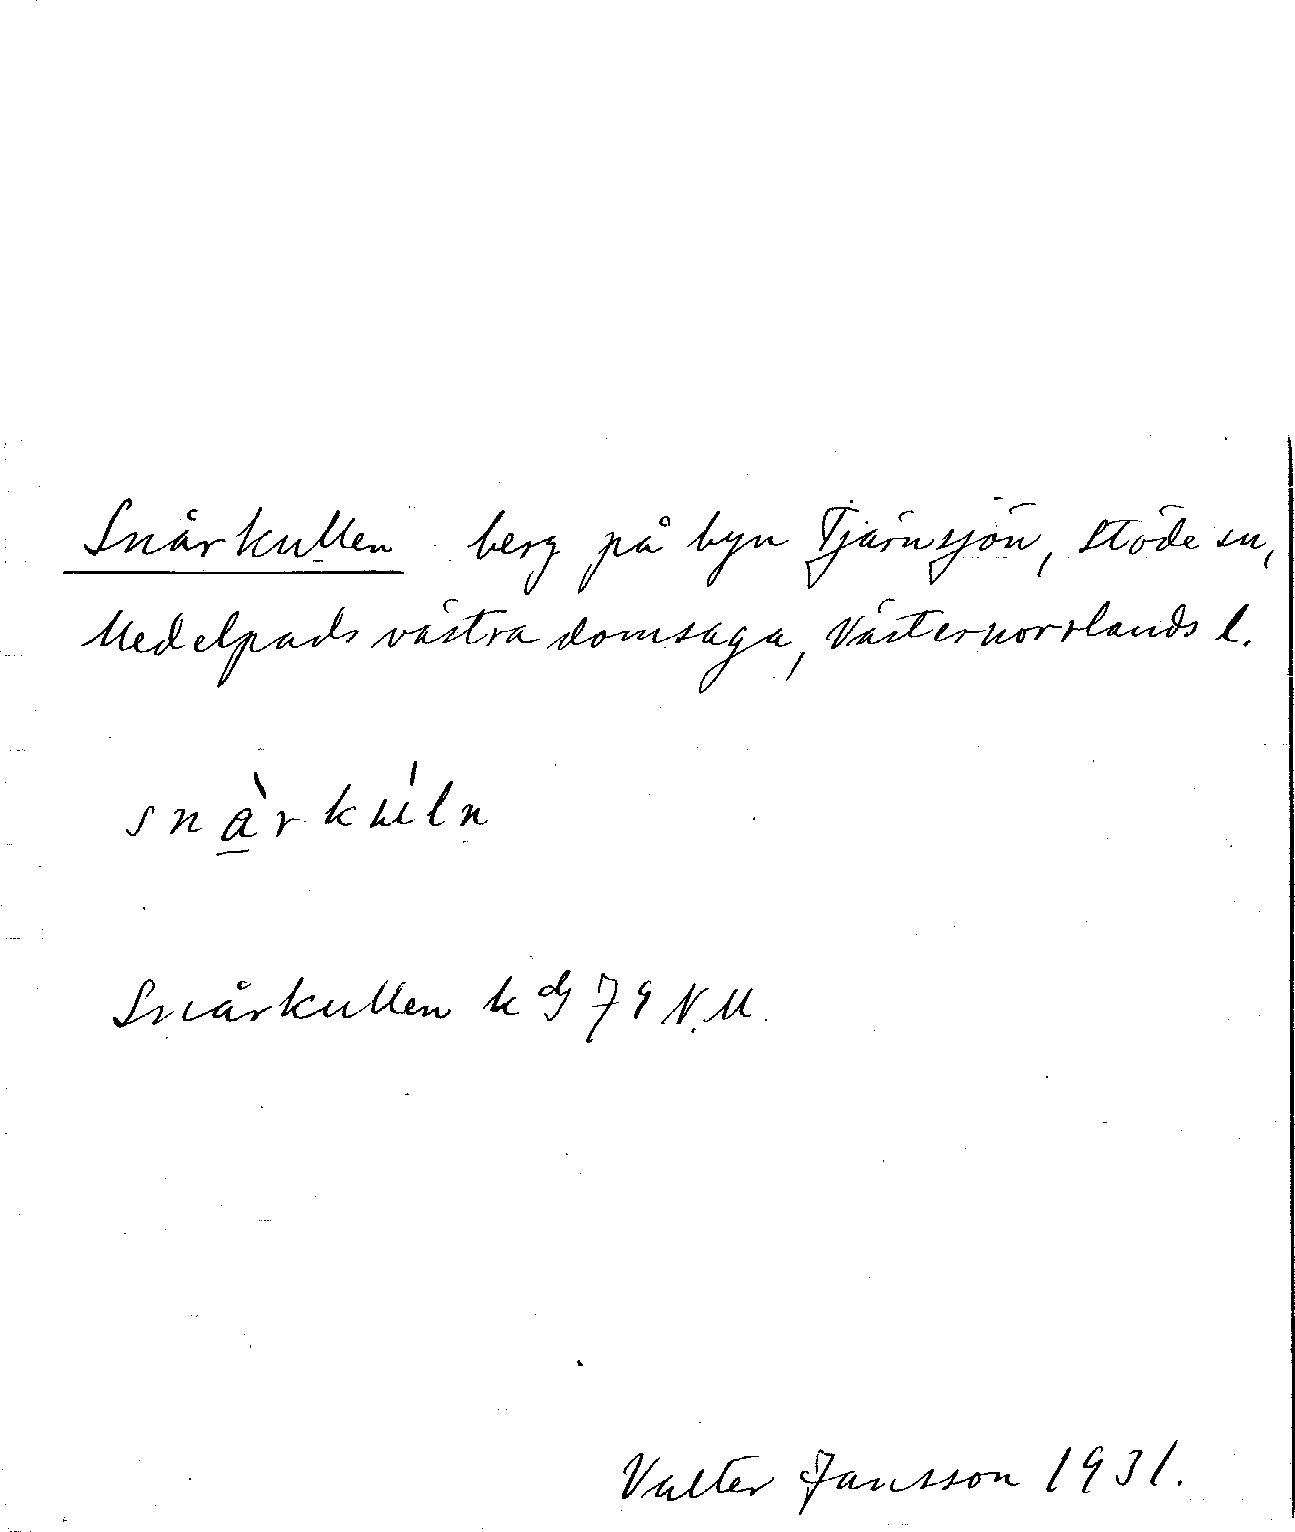 Snårkullen berg på byn Tjärnsjön, Stöde sn,
Medelpads västra domsaga, Västernorrlands l.
snà̲rkúln
Snårkullen k dg 79 N.M.
Valter Jansson 1931.